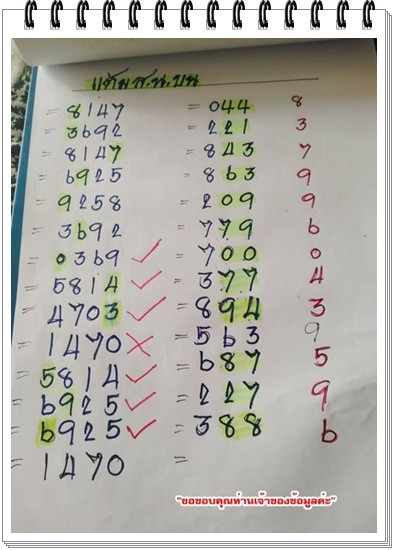 แต้ม ส.น. บน
= 8147 = 044 8
= 3692 = 221 3
= 8147 = 843 7
= 6925 = 863 9
= 9258 = 209 9
= 3692 = 779 6
= 0369 ✓ = 700 0
= 5814 ✓ = 377 4
= 4703 ✓ = 894 3
= 1470 ✗ = 563 9
= 5814 ✓ = 687 5
= 6925 ✓ = 227 9
= 6925 ✓ = 388 6
= 1470 =
"ขอขอบคุณท่านเจ้าของข้อมูลค่ะ"